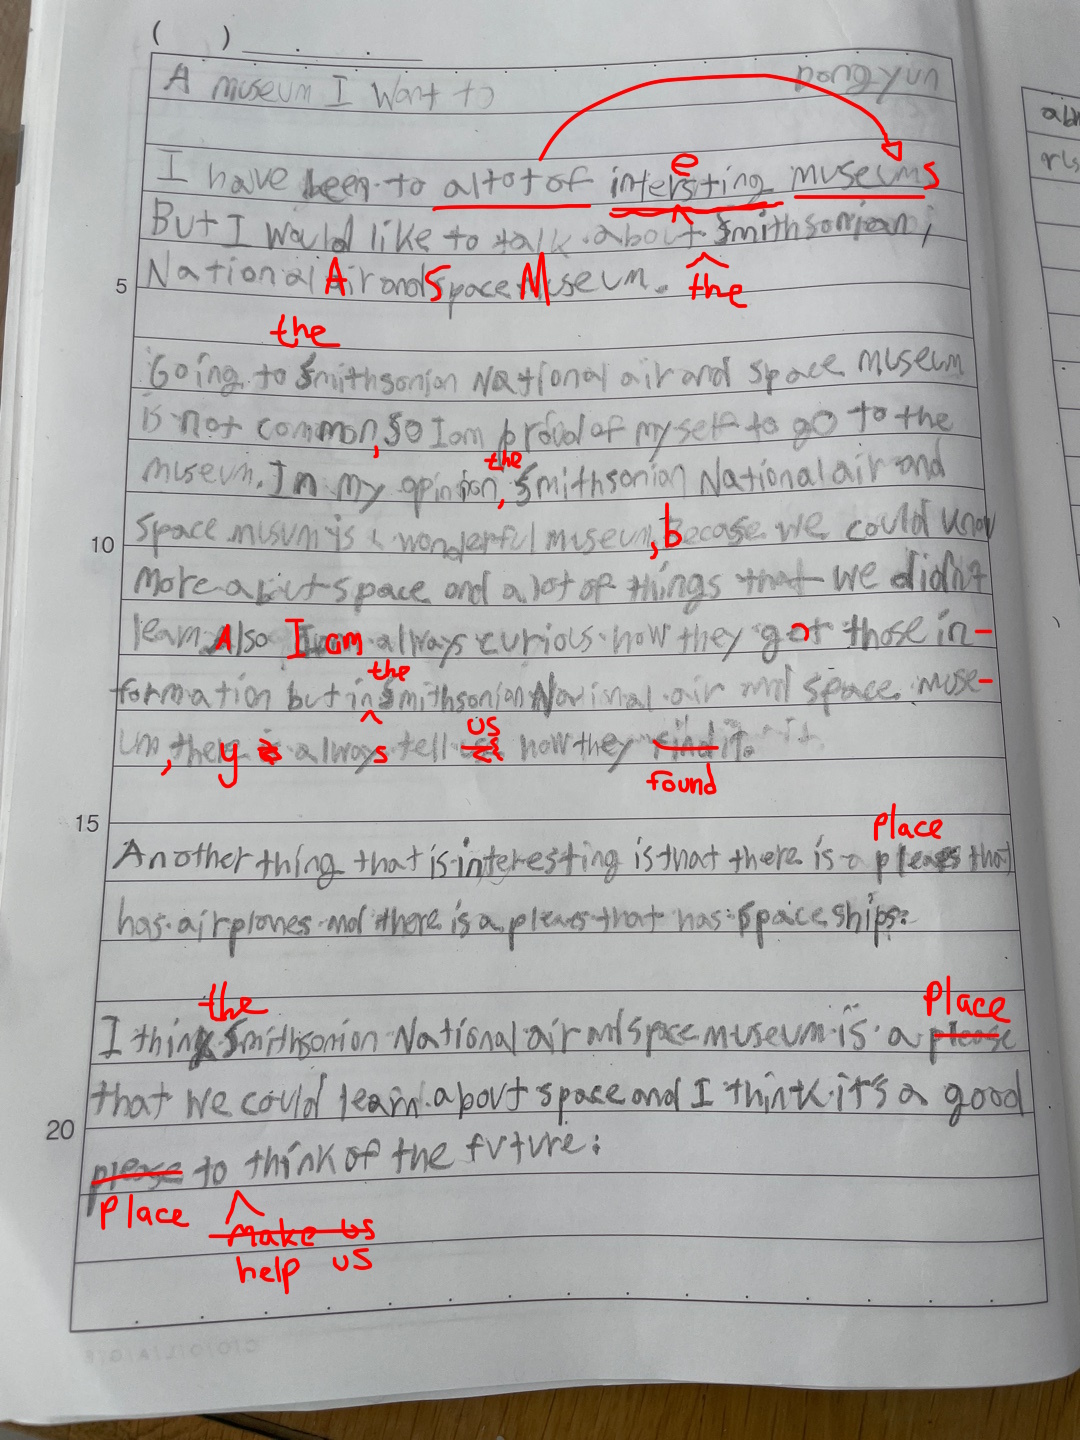 ( )
A museum I Want to Dongyun
e
I have been to alot of intersting museums
But I would like to talk about Smithsonian,
5 National Air and Space Museum. the
the
Going to Smithsonian National air and space museum
is not common, so I am proud of my self to go to the
the
museum. In my opinion, Smithsonian National air and
10 space musum is a wonderful museum, becase we could know
more about space and a lot of things that we didn't
learn. Also I am always curious how they got those in-
the
formation but in Smithsonian National air and space muse-
us
um, they always tell how they find it.
found
15
place
Another thing that is interesting is that there is a pleats that
has airplanes and there is a pleats that has space ships.
the place
I think Smithsonian National air and space museum is a please
that we could learn about space and I think it's a good
20 please to think of the future.
Place make us
help us